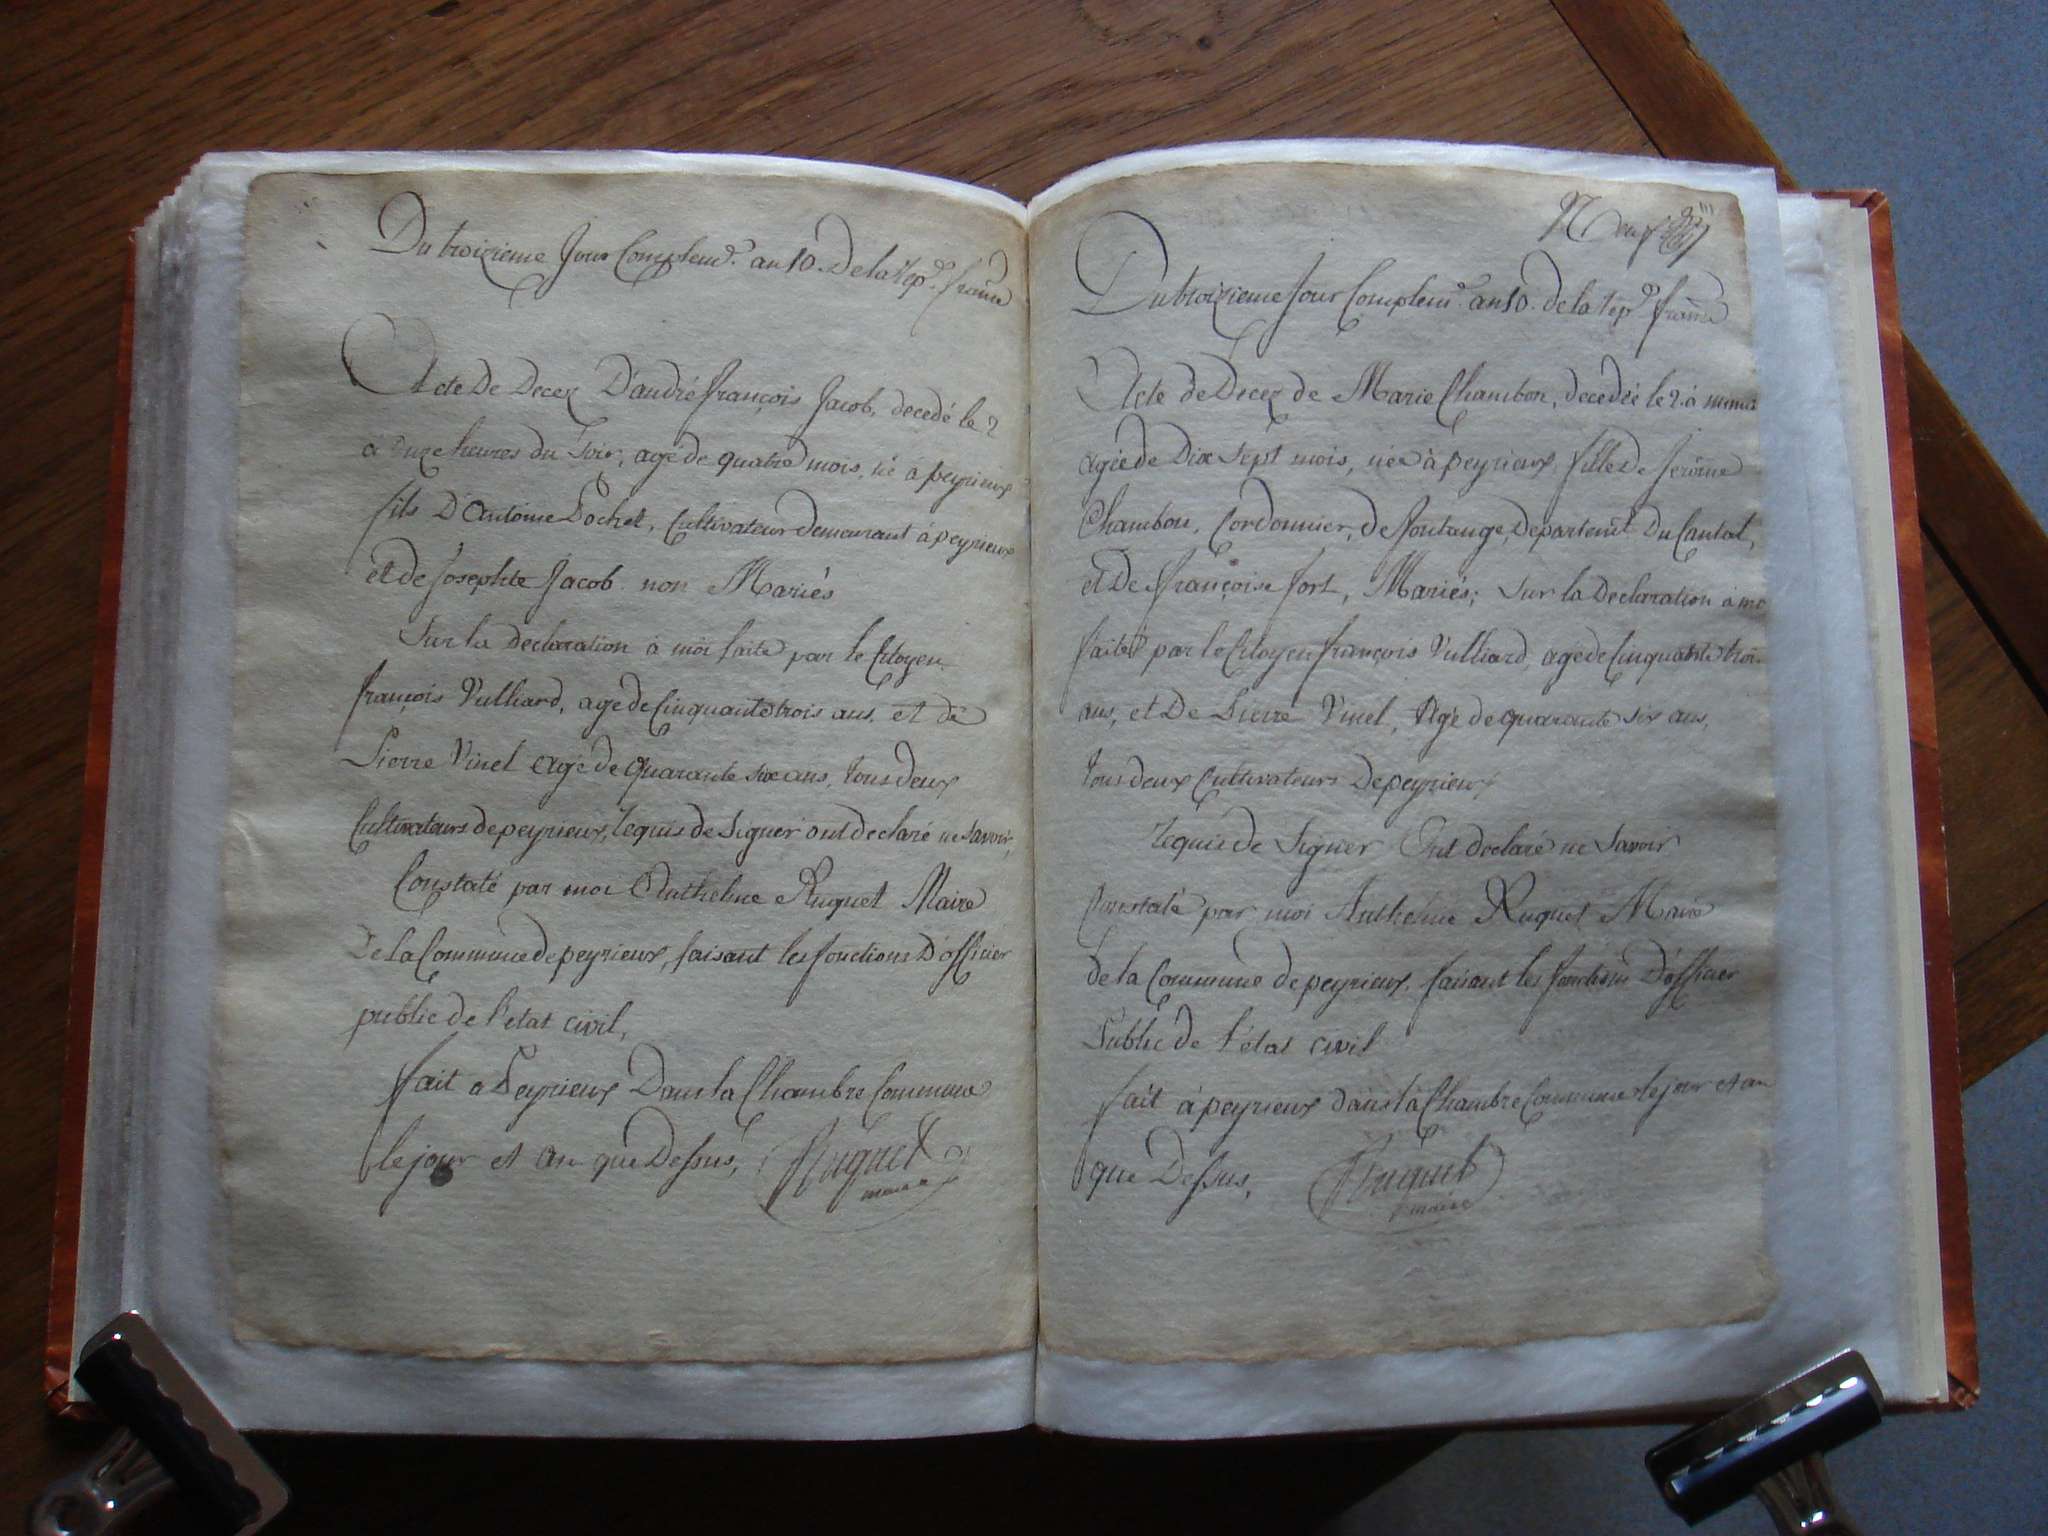 Du troizieme Jour Complem.e an 10. De la rep.e franne
Acte De Decez D'andré françois Jacob, decedé le 2
a onze heures du Soir, agé de quatre mois, né a peyrieux
fils D'Antoine Pochet, Cultivateur demeurant à peyrieux
et de Josephte Jacob non Mariés
Sur la declaration à moi faite par le Citoyen
françois Vulliard, agé de Cinquante trois ans, et de
Pierre Vinel agé de quarante six ans, tous deux
Cultivateurs de peyrieux, requis de Signer ont declaré ne savoir,
Constaté par moi Anthelme Ruguet Maire
De la Commune de peyrieux, faisant les fonctions D'officier
public de l'etat civil,
fait a Peyrieux Dans la Chambre Commune
le jour et an que Dessus, Ruguet
maire
Neuf
Du troizieme Jour Complem.e an 10. de la rep.e franne
Acte de Decez de Marie Chambon, decedée le 2 à minuit
agée de Dix Sept mois, née à peyrieux, fille de Jerôme
Chambon, Cordonnier, de fontange, Departemt Du Cantal,
et De françoise fort, Mariés; Sur la Declaration a moi
faite par le Citoyen françois Vulliard, agé de Cinquante trois
ans, et De Pierre Vinel, Agé de quarante six ans,
tous deux Cultivateurs De peyrieux
requis de Signer Ont declaré ne Savoir
Constaté par moi Anthelme Ruguet Maire
de la Commune de peyrieux, faisant les fonctions D'officier
Public de l'état civil
fait à peyrieux dans la Chambre Commune le jour et an
que Dessus, Ruguet
maire